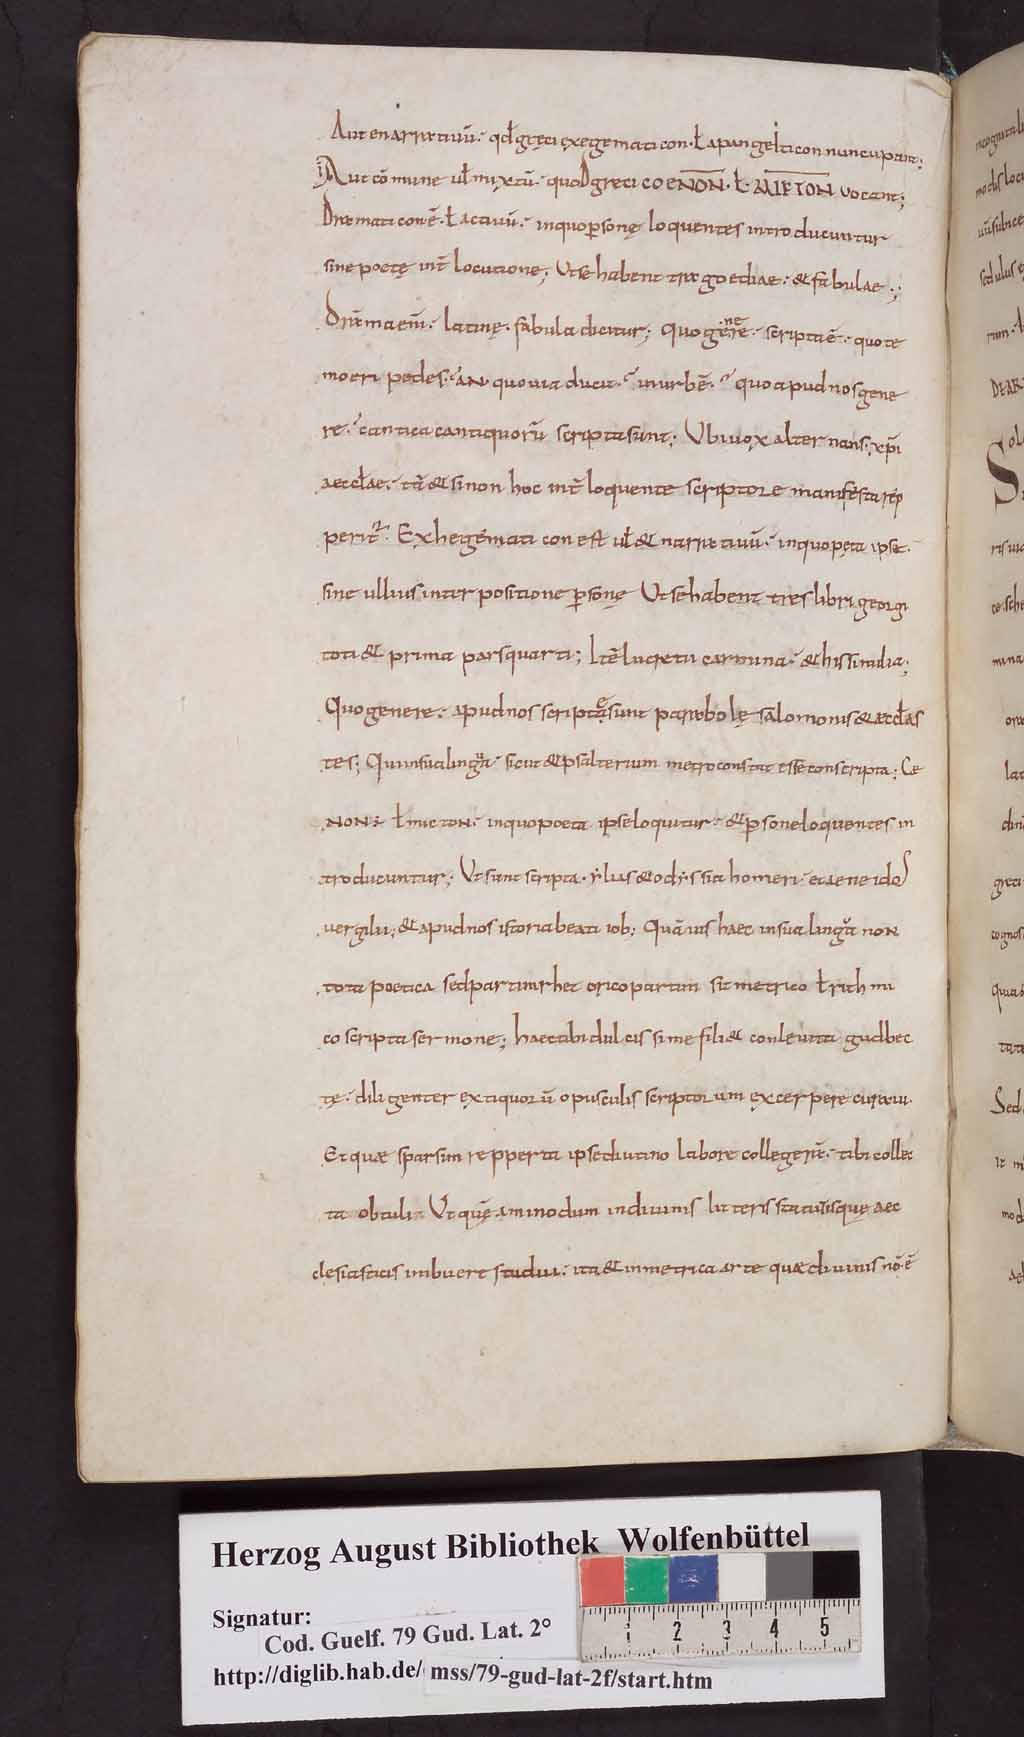 Aut enarratiuū· qđ gręci exegematicon· ł apangelticon nuncupant;
Aut cōmune uł mixtū· quod greci coenON· ł· MIKTON uocant;
Dramaticon ē· ł actiuū· in quo ꝑsonę loquentes introducuntur
sine poetę int̄ locutione; Ut se habent tragoediae· & fabulae·;
Drama enī· latinę· fabula dicitur; Quo genere· scripta ē· quo te
moeri pedes· AN quo uia ducit· in urbē· quo apud nos gene
re· cantica canticorū scripta sunt; Ubi uox alternans xp̄i
aeccłae· tā & si non hoc int̄ loquente scriptore manifesta rep
perit᷑· Exhegematicon est uł & narratiuū· in quo pęta ipse·
sine ullius inter positione ꝑsonę Ut se habent tres libri georgi
toti & prima pars quarti; Itē lucretii carmina· & his similia;
Quo genere· apud nos scripta sunt parabolę salomonis & aeccłas
tes; Qui in sua lingua· sicut & psalterium metro constat esse conscripta; Ce
NON· ł micton· in quo poeta ipse loquitur· & ꝑsone loquentes in
troducuntur; Ut sunt scripta· ylias & odyssia homeri et aeneidos
uergilii; & apud nos istoria beati iob; Quāuis haec in sua lingua non
tota poetica sed partim rhetorico partim sit metrico ł rithmi
co scripta sermone; haec tibi dulcissime fili & conleuita gudbec
tę· diligenter ex tiquorū opusculis scriptorum excerpere curaui·
Et quae sparsim repperta ipse diutino labore collegerā· tibi collec
ta obtuli· Ut quę ammodum in diuinis litteris statutisquę aec
clesiasticis imbuere studui· ita & in metrica arte quae diuinis nō ē
Herzog August Bibliothek Wolfenbüttel
Signatur:
Cod. Guelf. 79 Gud. Lat. 2°
http://diglib.hab.de/ mss/79-gud-lat-2f/start.htm
1 2 3 4 5